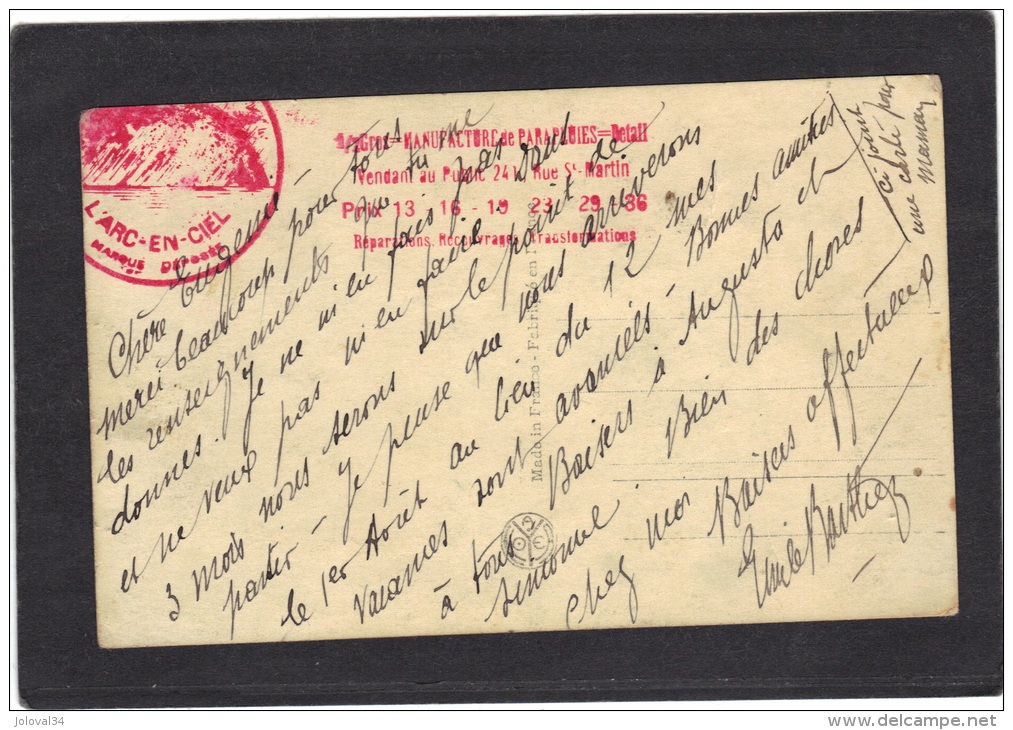 L'ARC-EN-CIEL
MARQUE DEPOSEE
Gros=MANUFACTURE de PARAPLUIES=Detail
Vendant au Public 241, Rue St-Martin
Prix 13 - 16 - 19 - 23 - 29 - 36
Réparations, Recouvrages, Transformations
Chère Eugénie
Merci beaucoup pour tous
les renseignements que tu me
donnes. Je ne m'en fais pas
et ne veux pas m'en faire. Dans
3 mois nous serons sur le point de
partir - Je pense que nous arriverons
le 1er Août au lieu du 12 mes
vacances sont avancées. Bonnes amitiés
à tous Baisers à Augusta et
Simonne Bien des choses
chez moi Baisers affectueux
Emile Barthez
ci joint
une carte pour
maman
Made in France - Fabriqué en
joloval34
http://www.delcampe.net